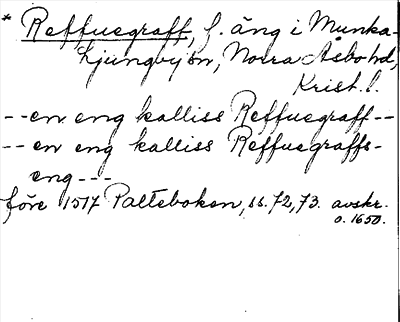 * Reffuegraff, f. äng i Munka-
Ljungby sn, Norra Åsbo hd,
Krist. l.
--en eng kalliss Reffuegraff--
--en eng kalliss Reffuegraffs-
eng---
före 1517 Palteboken, ss. 72, 73. avskr.
o. 1650.